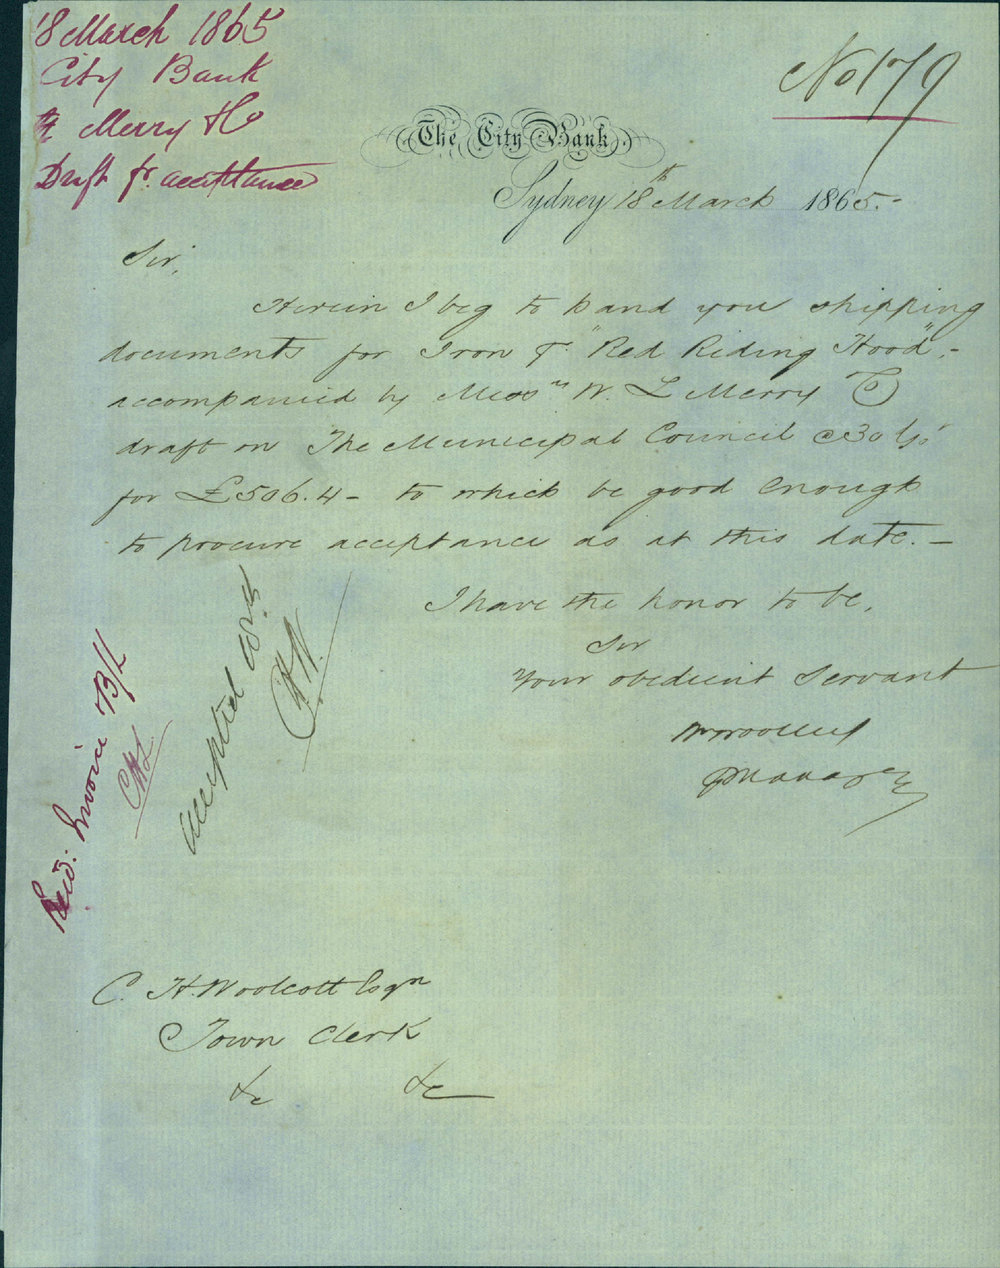 18 March 1865
City Bank
Merry & Co
Draft fr. acceptance
No 179
The City Bank
Sydney 18th March 1865.-
Sir,
Herein I beg to hand you shipping
documents for Iron "Red Riding Hood",-
accompanied by Messrs W. L Merry Co
draft on The Municipal Council @ 30
for £506.4- to which be good enough
to procure acceptance as at this date.-
I have the honor to be,
Sir
Your obedient Servant
Manager
accepted
C.H.W.
Recd. Invoice B/L
C. H. Woolcott Esqr
Town Clerk
&c &c